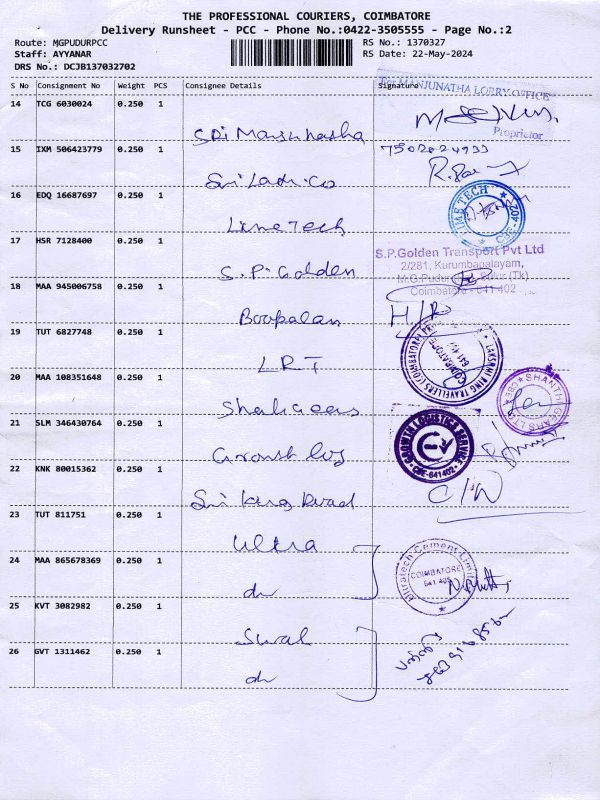 THE PROFESSIONAL COURIERS, COIMBATORE
Delivery Runsheet - PCC - Phone No.:0422-3505555 - Page No.:2
Route: MGPUDURPCC
RS No.: 1370327
Staff: AYYANAR
RS Date: 22-May-2024
DRS No.: DCJB137032702
S No Consignment No Weight PCS Consignee Details Signature
For MANJUNATHA LORRY OFFICE
14 TCG 6030024 0.250 1
Proprietor
15 IXM 506423779 0.250 1
7502024933
Sri Ladi.Co
16 EDQ 16687697 0.250 1
LIME TECH
CBE-402
Lime Tech
17 HSR 7128400 0.250 1
S.P.Golden Transport Pvt Ltd
2/281, Kurumbapalayam,
S.P. Golden
Coimbatore - 641 402
18 MAA 945006758 0.250 1
Boopalan
19 TUT 6827748 0.250 1
LRT
LAKSHMI RING TRAVELLERS (COIMBATORE)
20 MAA 108351648 0.250 1
SHANTHI GEARS LTD
CBE
21 SLM 346430764 0.250 1
GROWTH LOGISTICS SERVICE
CBE-641402
22 KNK 80015362 0.250 1
Sri King Road
23 TUT 811751 0.250 1
Ultra
24 MAA 865678369 0.250 1
Ultratech Cement Limited
COIMBATORE
do
25 KVT 3082982 0.250 1
26 GVT 1311462 0.250 1
do